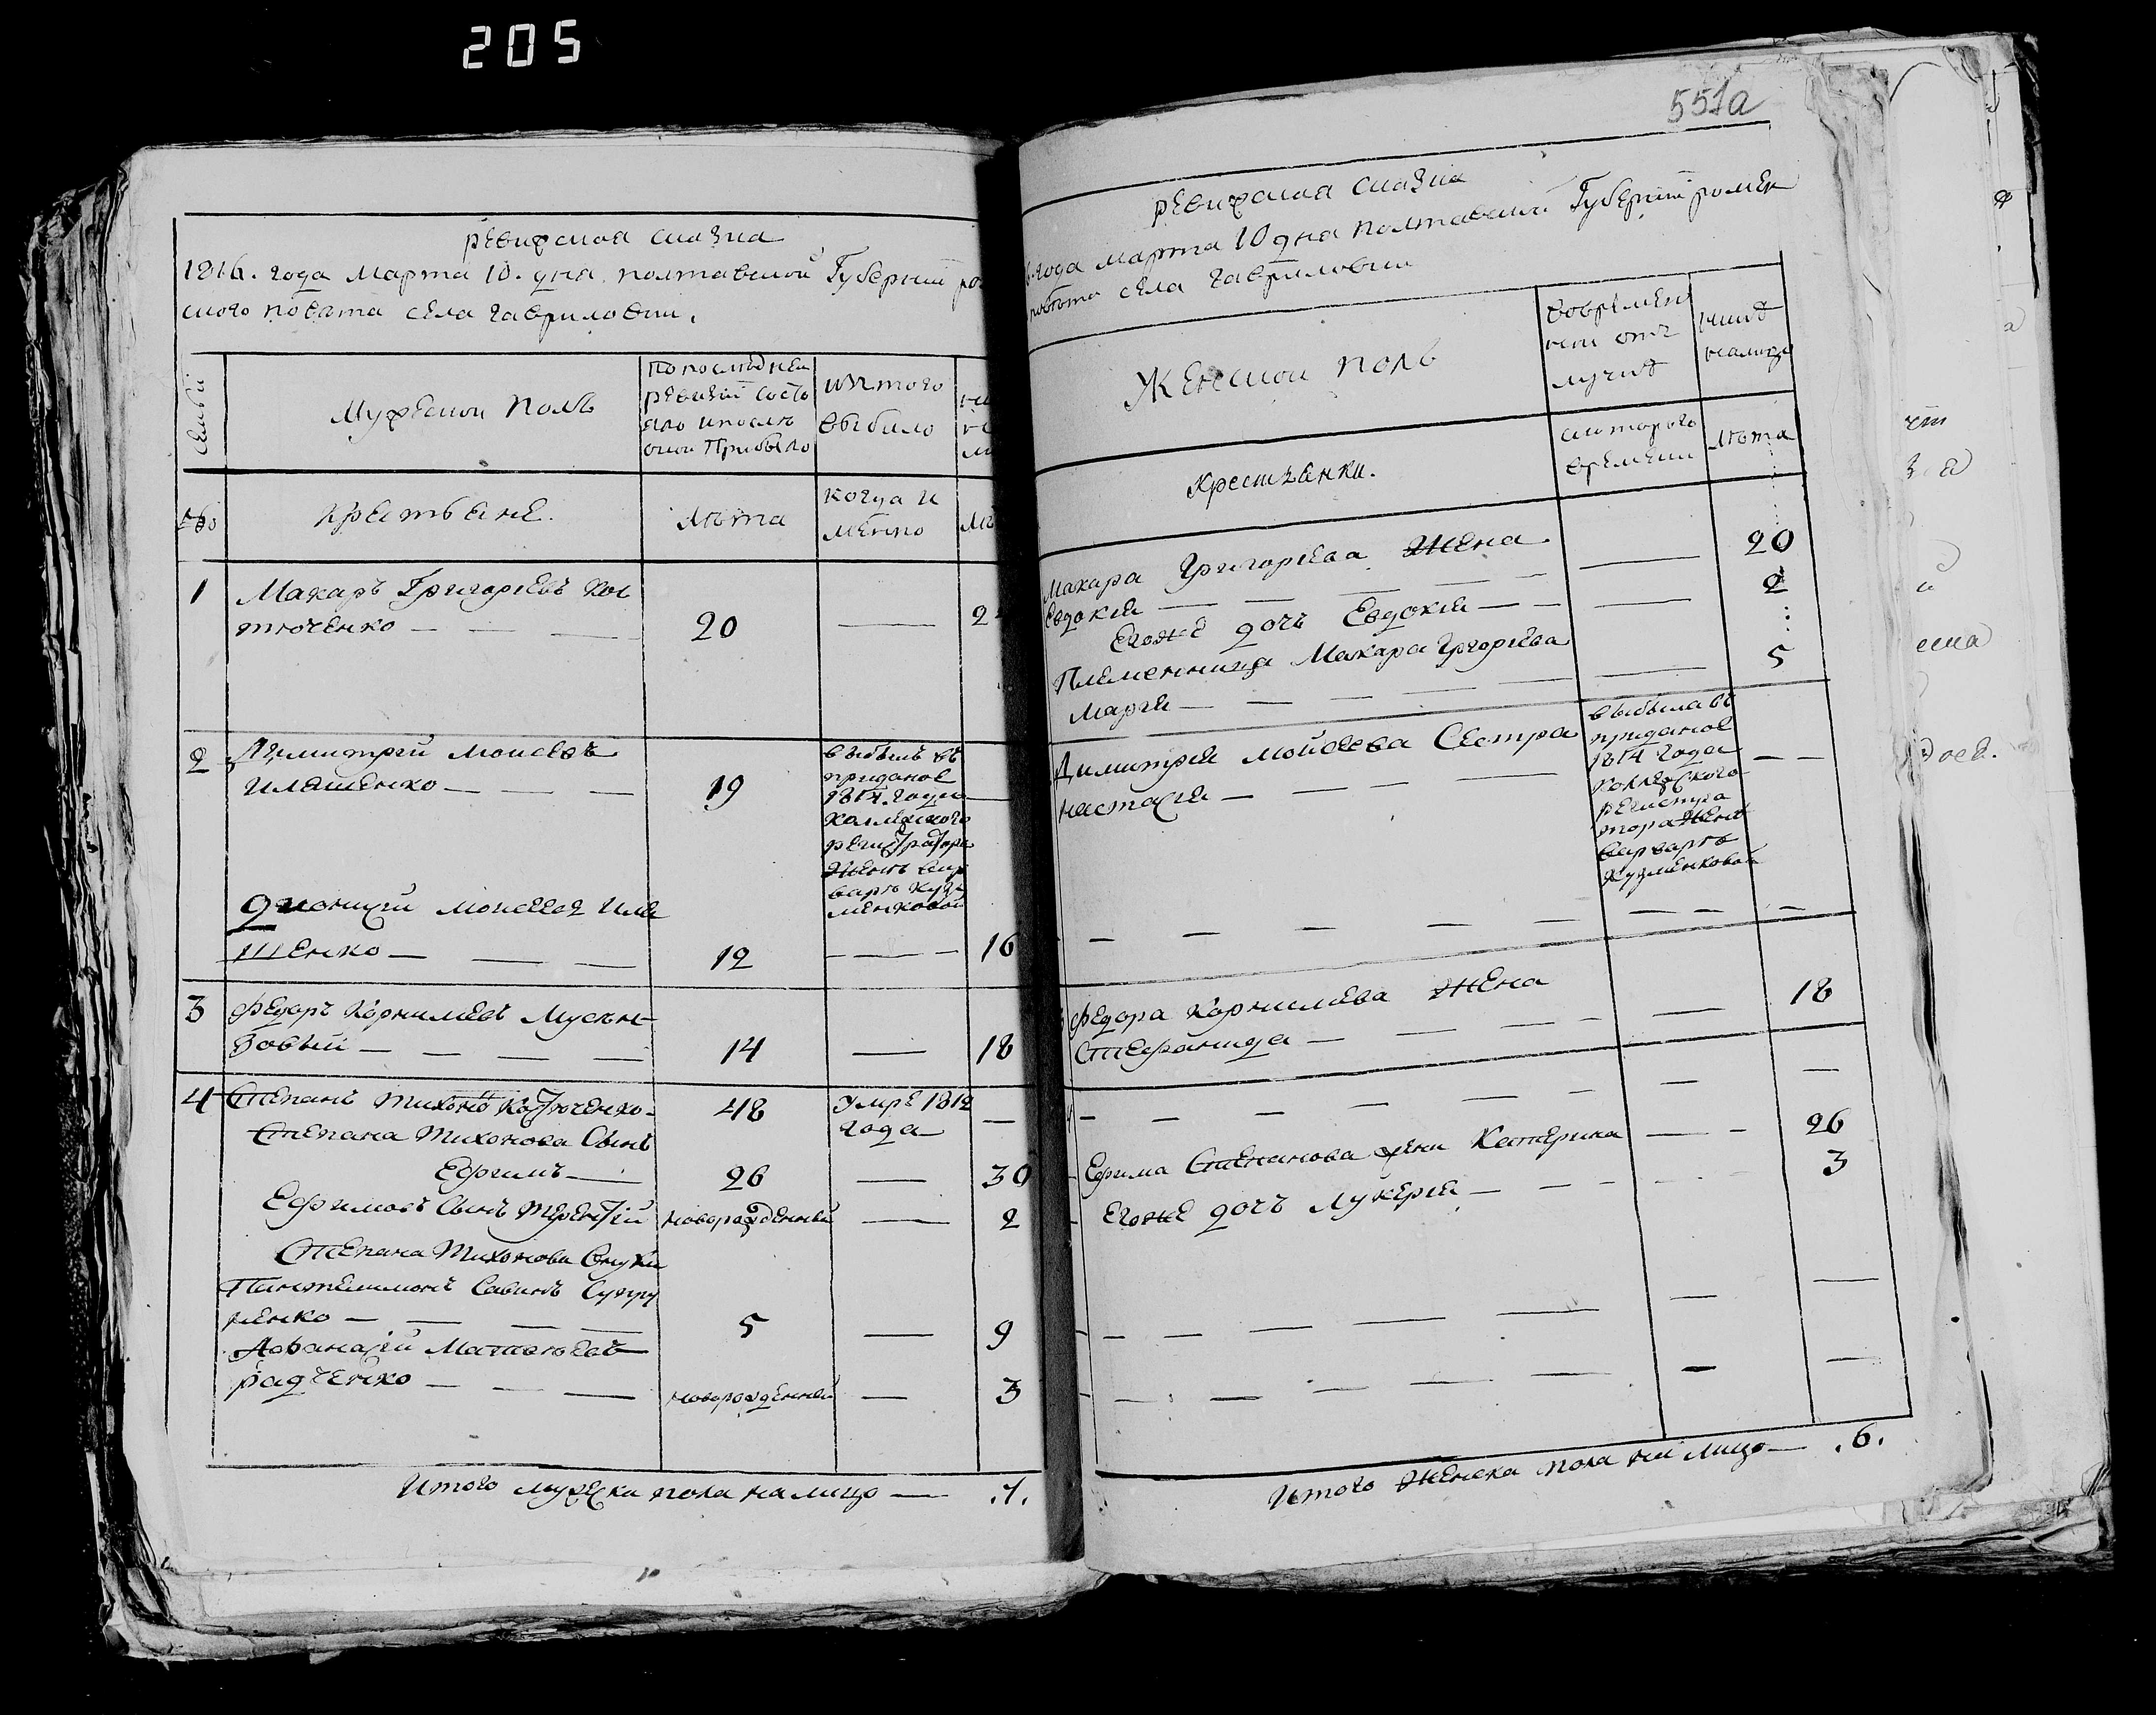 205
551а
ревизская сказка
1816. года марта 10. дня полтавской Губернии ро
ского повета села гавриловки.
Семьи
Мужеской полъ
По последней
ревизии состо
яло и после
оной Прибыло
изтого
выбило
№
крестьяне.
лета
когда и
мѣнно
1
Макаръ Григорѣевъ Кос
тюченко — — —
20
—
2
2
Димитрїй моисеевъ
Иляшенко — — —
19
выбылъ въ
приданое
1814. года
колежского
регистратора
Женѣ вар
варѣ Куз
менковой
—
Дионисїй моисеевъ Иля
шенко — — —
12
— — —
16
3
Федоръ Корнилѣевъ
— — — —
14
—
18
4
Степанъ тихоновъ Костюченко
48
умре 1812
года
—
Степана тихонова Сынъ
Ефримъ —
26
—
30
Ефримовъ Сынъ терентїй
новорожденный
—
2
Степана Тихонова Внуки
Пантелимонъ Савинъ Супру
ненко — — — —
5
—
9
Афанасїй Матвѣевъ
радченко — — —
новорожденный
—
3
Итого мужеска пола на лицо — .7.
ревизская сказка
года марта 10 дня полтавской Губернии ромен
повета села гавриловки
Женской полъ
вовремен
ной отл
лучкѣ
ныне
налицо
Крестьянки.
скоторого
времени
лѣта
Макара Григорѣева Жена
Евдокїя — — — — —
—
20
Егоже дочь Евдокїя — —
—
2
Племенница Макара Григорѣева
Марїя — — — —
—
5
Димитрїя мойсеева Сестра
настасїя — — — —
выбыла въ
приданое
1814 года
колежского
регистра
тора женѣ
варварѣ
Кузменковой
— —
— — — — — — — —
Федора Корнилѣева Жена
Стефанида — — — —
—
18
— — — — — — — —
Ефрима Степанова жена Катерина
— —
26
Егоже дочь Лукерїя — — —
3
— — — — — — —
— — — — — — —
Итого Женска пола на лицо — .6.